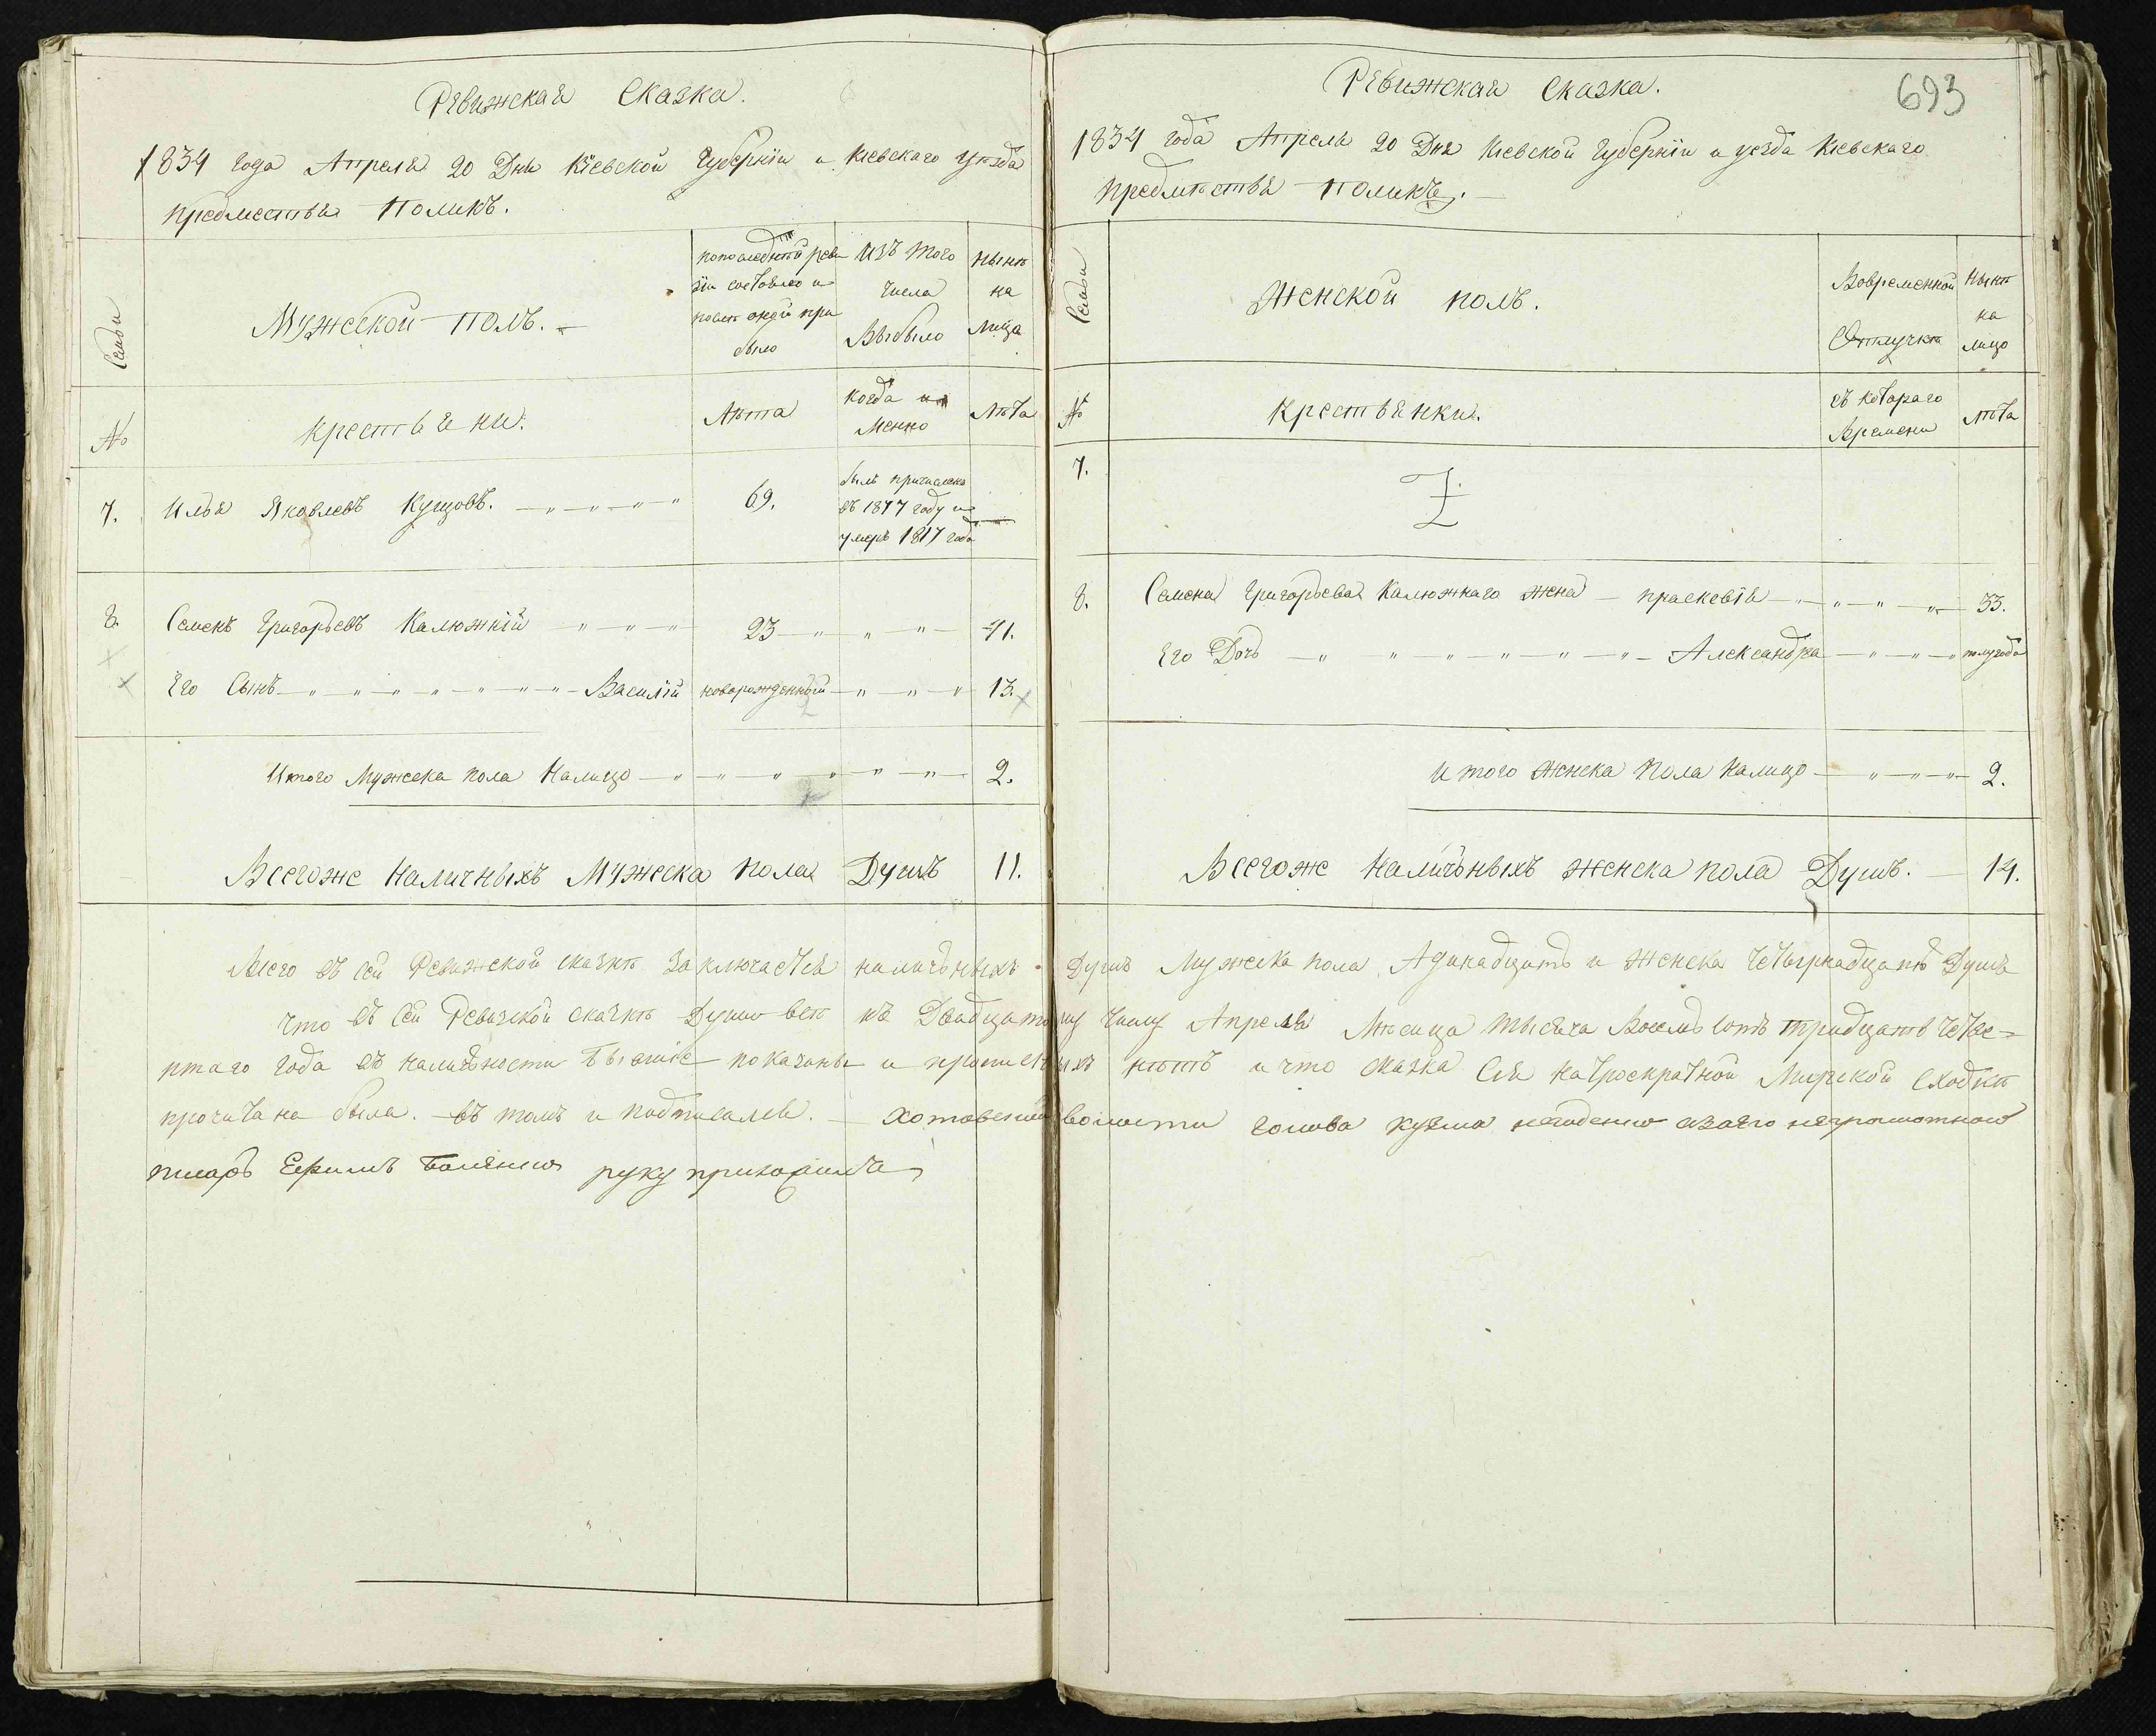 Ревижская Сказка.
1834 года Апреля 20 Дня Кіевской Губерніи и Кіевскаго уезда
предместья Поликъ.
Семьи
Мужеской полъ.
попоследнѣй реви
зіи состояло и
послѣ оной при
было
Изъ того
числа
Выбыло
нынѣ
на
лица
№
крестьяни.
Лѣта
когда и
Менно
Лѣта
7.
Илья Яковлевъ Купцовъ.
69.
былъ причисленъ
въ 1817 году и
умеръ 1817 года
8.
Семенъ Григорьевъ Калюжній
23
41.
Его Сынъ Василій новорожденный
13.
Итого Мужеска пола Налицо
2.
Всегоже Наличныхъ Мужеска пола Душъ
11.
Ревижская Сказка.
693
1834 года Апреля 20 Дня Кіевской Губерніи и уезда Кіевскаго
предмѣстья Поликъ.
Семьи
Женской полъ.
Вовременной
Отлучкѣ
Нынѣ
на
лицо
№
крестьянки.
съ котораго
Времени
лѣта
7.
8.
Семена Григорьева Калюжнаго жена Прасковія
33.
Его Дочь Александра
полугода
Итого женска пола налицо
2.
Всегоже Наличьныхъ женска пола Душъ.
14.
Всего въ сей Ревижской сказкѣ заключается наличьныхъ Душъ Мужеска пола Адинадцать и Женска четырнадцать Душъ
что въ сей Ревизской сказкѣ Души всѣ къ Двадцатому числу Апреля Мѣсяца тысяча Восемь сотъ тридцать четве=
ртаго года въ наличьности бывшіе показаны и прописныхъ нѣтъ и что сказка сія натроекратной Мирской сходкѣ
прочитана была. въ томъ и подписался. Хотовской волости голова Кузма азаего неграмотного
писарь Ефимъ руку приложилъ